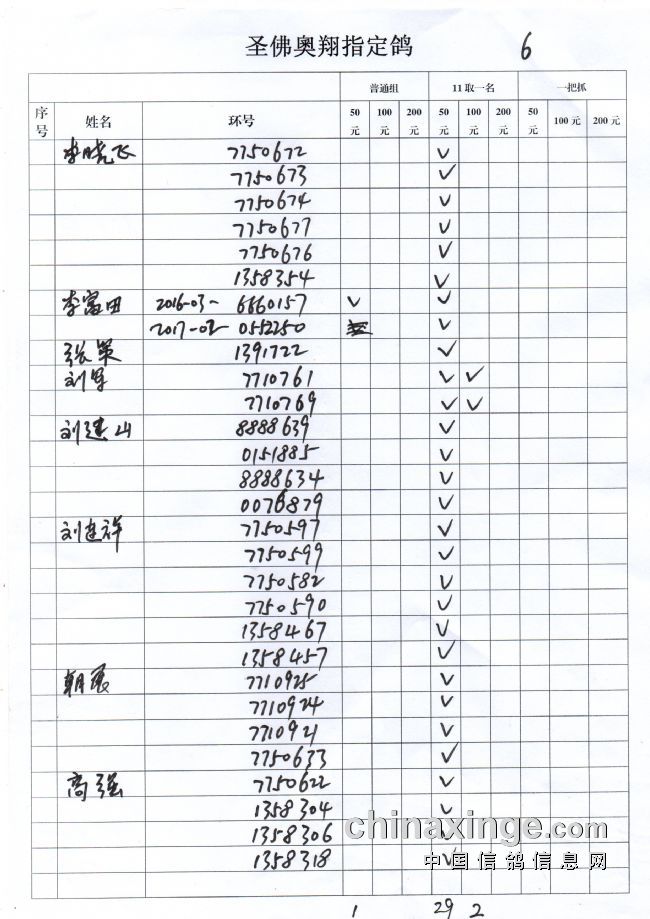 圣佛奥翔指定鸽 6
普通组 11取一名 一把抓
序号 姓名 环号 50元 100元 200元 50元 100元 200元 50元 100元 200元
李晓飞 7750672 ✓
7750673 ✓
7750674 ✓
7750677 ✓
7750676 ✓
1358354 ✓
李富田 2016-03- 6660157 ✓ ✓
2017-02- 0552250 ✓
张策 1391722 ✓
刘军 7710761 ✓ ✓
7710769 ✓ ✓
刘建山 8888639 ✓
0151885 ✓
8888634 ✓
0076879 ✓
刘连祥 7750597 ✓
7750599 ✓
7750582 ✓
7750590 ✓
1358467 ✓
1358457 ✓
朝展 7710925 ✓
7710924 ✓
7710921 ✓
7750633 ✓
高强 7750622 ✓
1358304 ✓
1358306 ✓
1358318 ✓
chinaxinge.com
中国信鸽信息网
1 29 2